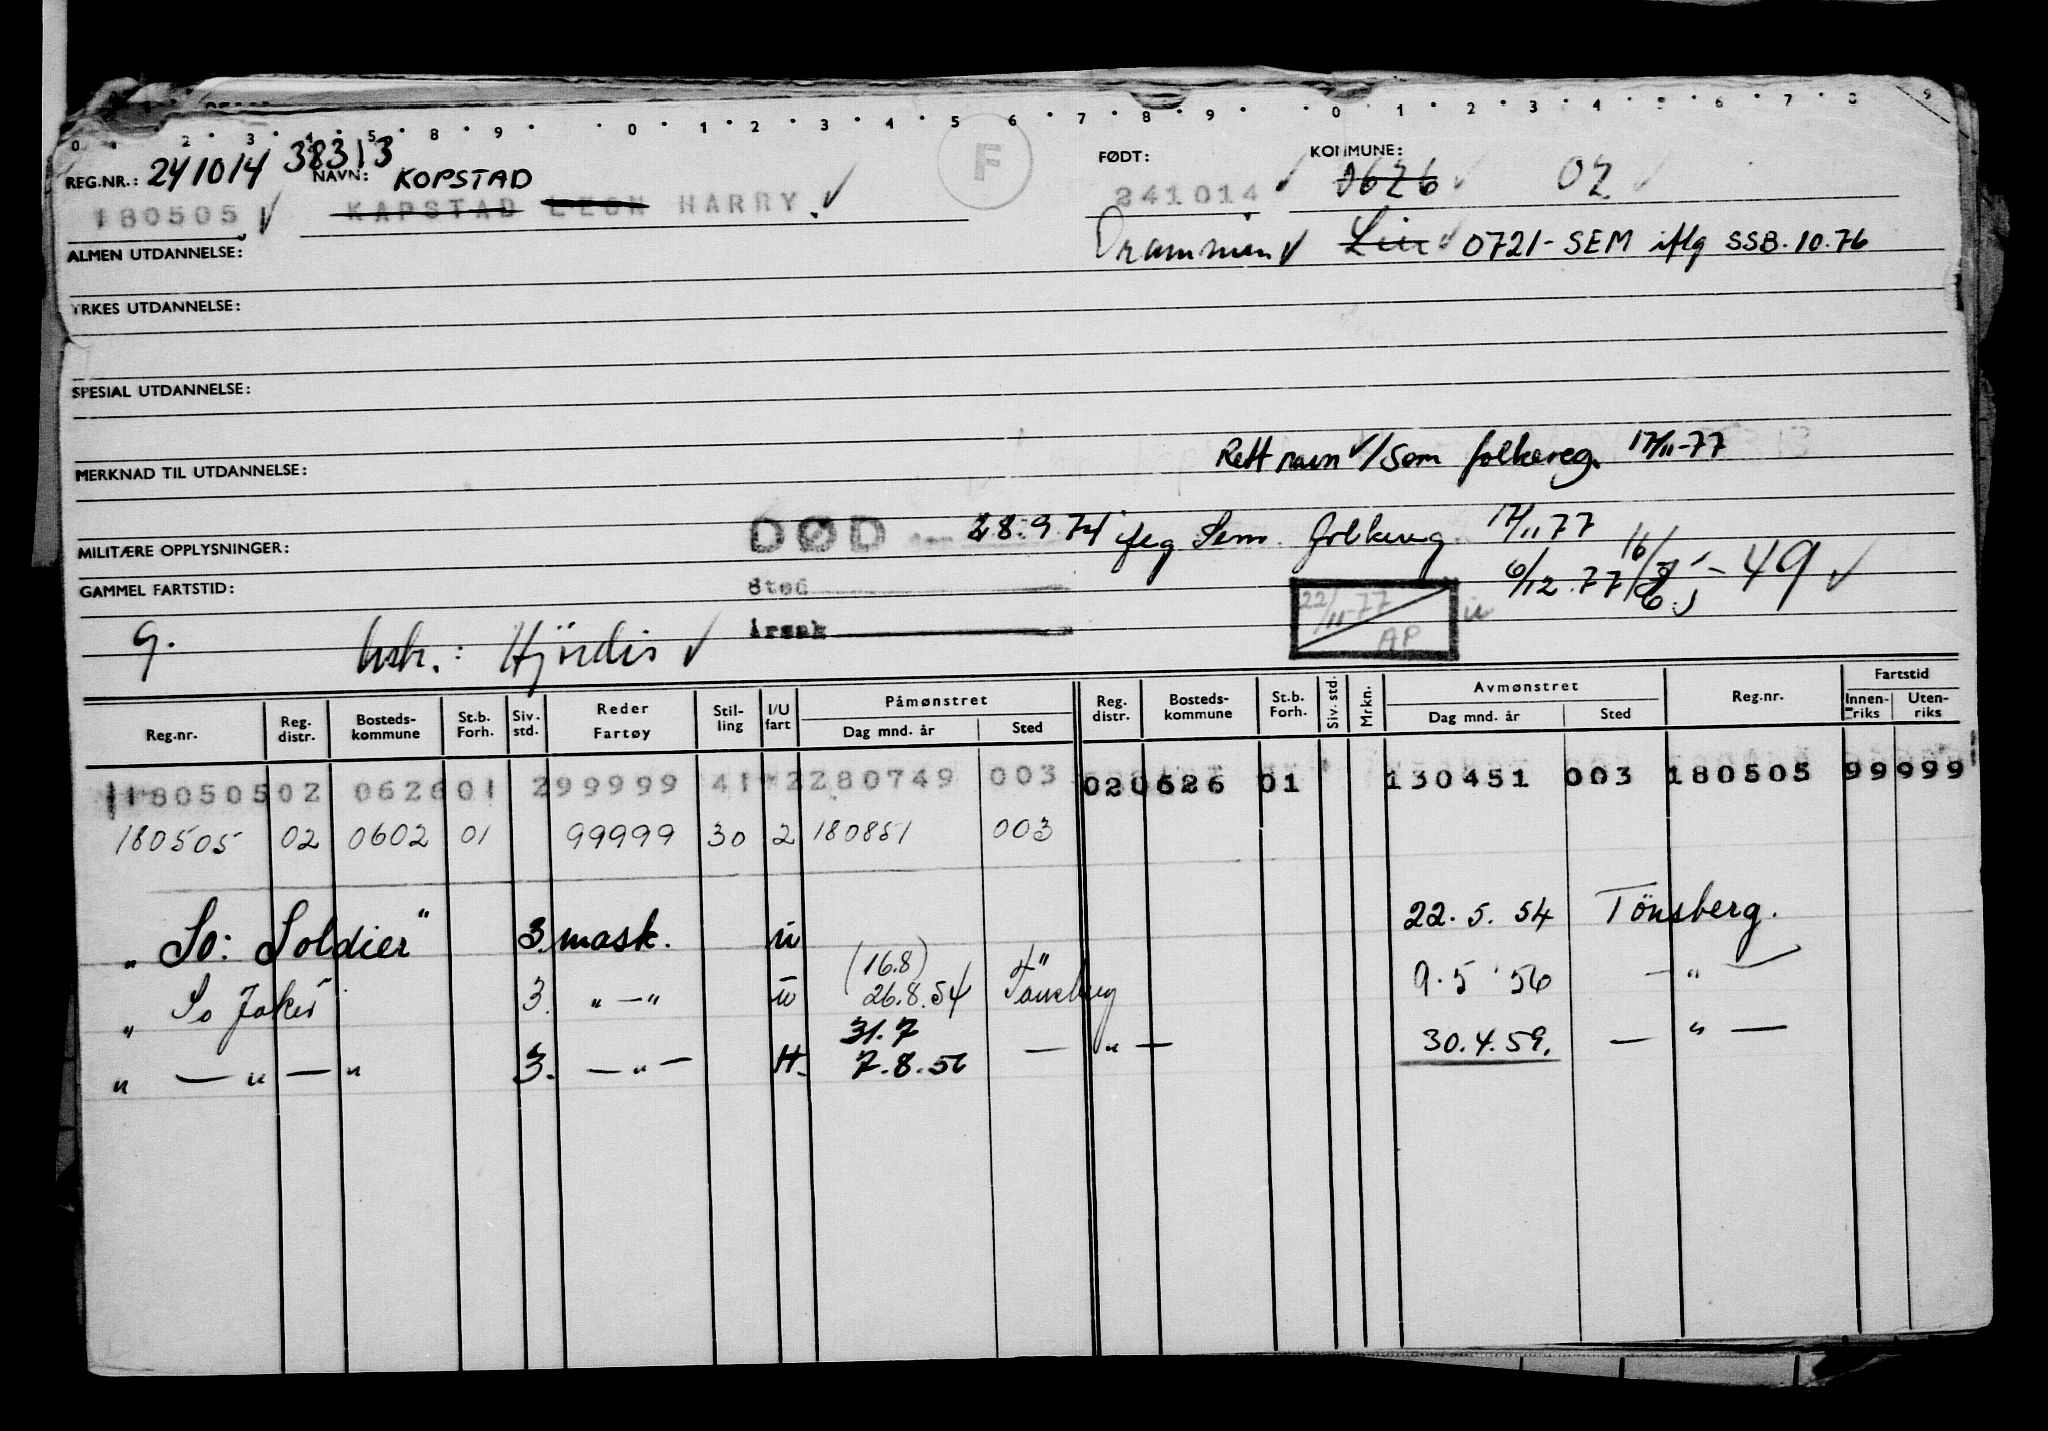 0 · 2 · 3 · 4 · 5 · 8 · 9 · 0 · 1 · 2 · 3 · 4 · 5 6 · 7 · 8 · 9 · 0 · 1 · 2 · 3 · 4 · 5 · 6 · 7 · 8 · 9
REG.NR.: 241014 38313 NAVN: KOPSTAD F FØDT: KOMMUNE: 0626 02
180505 KAPSTAD LEON HARRY. 241014
ALMEN UTDANNELSE: Drammen Lier 0721- SEM iflg SSB. 10.76
YRKES UTDANNELSE:
SPESIAL UTDANNELSE:
Rett navn v/Sem folkereg. 17/11-77
MERKNAD TIL UTDANNELSE:
DØD 28.9.74 Sem. folkereg 17/11 77
MILITÆRE OPPLYSNINGER:
GAMMEL FARTSTID: Sted 6/12.77 16/ - 49
22/11-77 AP u
Årsak
g. hsh.: Hjördis
Reg.nr. Reg. distr. Bosteds- kommune St.b. Forh. Siv. std. Reder Fartøy Stil- ling I/U fart Påmønstret Dag mnd. år Sted Reg. distr. Bosteds- kommune St.b. Forh. Siv. std. Mrkn. Avmønstret Dag mnd. år Sted Reg.nr. Fartstid Innen- riks Uten- riks
180505 02 0626 01 2 99999 41 2 280749 003 02 0626 01 130451 003 180505 99 999
180505 02 0602 01 99999 30 2 180851 003
" So: Soldier" 3. mask. u 22.5.54 Tönsberg.
" So Jaker 3. " — " u (16.8) 26.8.54 Tønsberg 9.5 56 — " —
" — " — " 3. — " — H. 31.7 7.8.56 — " — 30.4.59. — " —